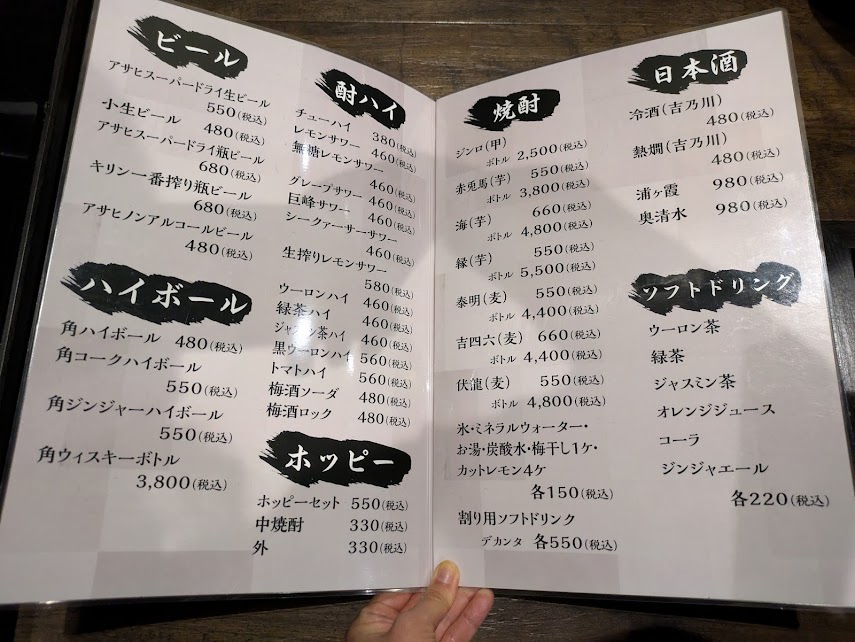 ビール
アサヒスーパードライ生ビール
550(税込)
小生ビール 480(税込)
アサヒスーパードライ瓶ビール
680(税込)
キリン一番搾り瓶ビール
680(税込)
アサヒノンアルコールビール
480(税込)
ハイボール
角ハイボール 480(税込)
角コークハイボール
550(税込)
角ジンジャーハイボール
550(税込)
角ウィスキーボトル
3,800(税込)
酎ハイ
チューハイ 380(税込)
レモンサワー 460(税込)
無糖レモンサワー
460(税込)
グレープサワー 460(税込)
巨峰サワー 460(税込)
シークァーサーサワー
460(税込)
生搾りレモンサワー
580(税込)
ウーロンハイ 460(税込)
緑茶ハイ 460(税込)
ジャスミン茶ハイ 460(税込)
黒ウーロンハイ 560(税込)
トマトハイ 560(税込)
梅酒ソーダ 480(税込)
梅酒ロック 480(税込)
ホッピー
ホッピーセット 550(税込)
中焼酎 330(税込)
外 330(税込)
焼酎
ジンロ(甲)
ボトル 2,500(税込)
赤兎馬(芋) 550(税込)
ボトル 3,800(税込)
海(芋) 660(税込)
ボトル 4,800(税込)
縁(芋) 550(税込)
ボトル 5,500(税込)
泰明(麦) 550(税込)
ボトル 4,400(税込)
吉四六(麦) 660(税込)
ボトル 4,400(税込)
伏龍(麦) 550(税込)
ボトル 4,800(税込)
氷・ミネラルウォーター・
お湯・炭酸水・梅干し1ケ・
カットレモン4ケ
各150(税込)
割り用ソフトドリンク
デカンタ 各550(税込)
日本酒
冷酒(吉乃川)
480(税込)
熱燗(吉乃川)
480(税込)
浦ヶ霞 980(税込)
奥清水 980(税込)
ソフトドリンク
ウーロン茶
緑茶
ジャスミン茶
オレンジジュース
コーラ
ジンジャエール
各220(税込)